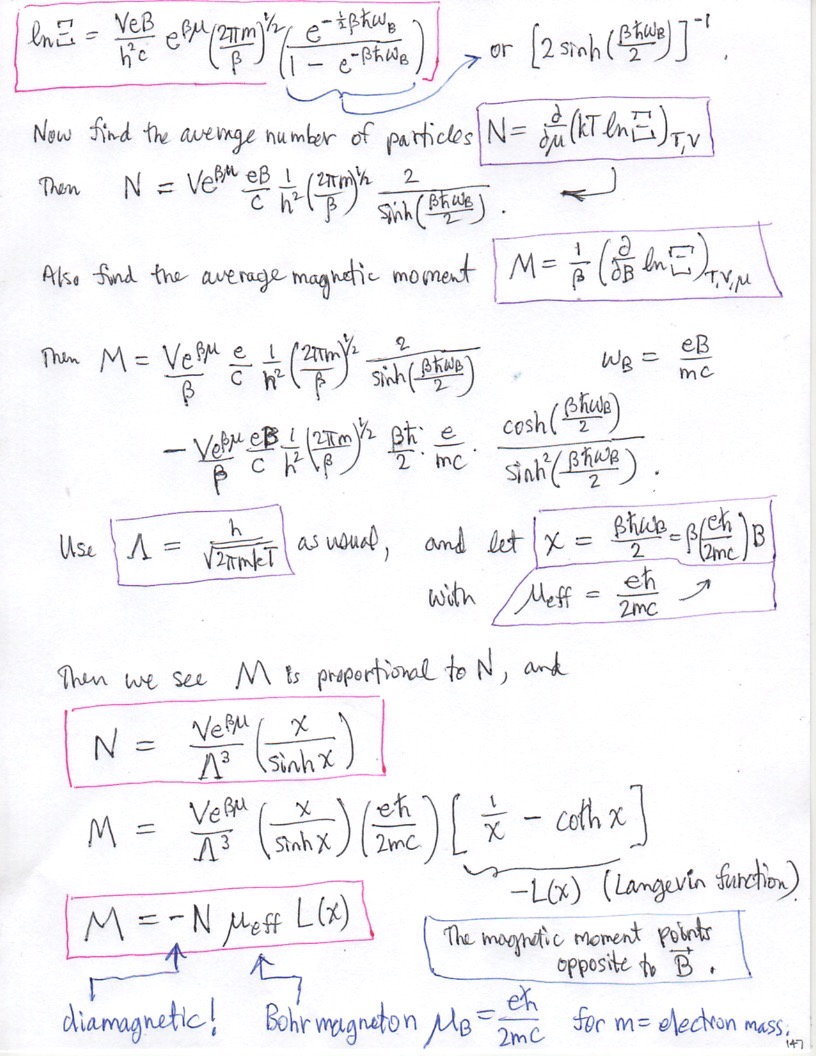 lnΞ = VeB/h²c e^βμ (2πm/β)^1/2 (e^-½βħω_B / 1 - e^-βħω_B) or [2 sinh(βħω_B/2)]^-1.
Now find the average number of particles N = ∂/∂μ (kT lnΞ)_T,V
Then N = Ve^βμ eB/c 1/h² (2πm/β)^1/2 2/sinh(βħω_B/2).
Also find the average magnetic moment M = 1/β (∂/∂B lnΞ)_T,V,μ
Then M = Ve^βμ/β e/c 1/h² (2πm/β)^1/2 2/sinh(βħω_B/2) ω_B = eB/mc
- Ve^βμ/β eB/c 1/h² (2πm/β)^1/2 βħ/2 · e/mc · cosh(βħω_B/2)/sinh²(βħω_B/2).
Use Λ = h/√2πmkT as usual, and let x = βħω_B/2 = β(eħ/2mc)B
with μeff = eħ/2mc
Then we see M is proportional to N, and
N = Ve^βμ/Λ³ (x/sinh x)
M = Ve^βμ/Λ³ (x/sinh x) (eħ/2mc) [1/x - coth x]
-L(x) (Langevin function)
M = -N μeff L(x)
The magnetic moment points
opposite to B⃗.
diamagnetic! Bohr magneton μ_B = eħ/2mc for m = electron mass.
147